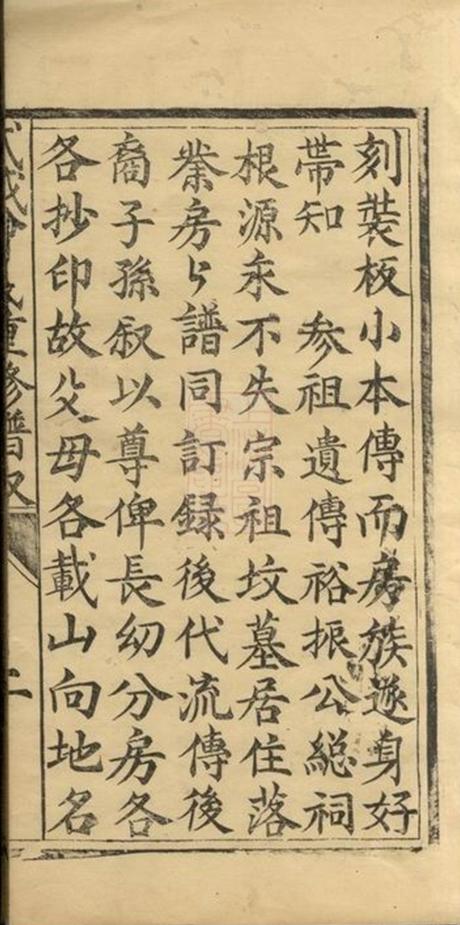 刻裝板小本傳而房族遂身好
帶知　参祖遺傳裕振公総祠
根源永不失宗祖坟墓居住落
業房々譜同訂録後代流傳後
裔子孫叙以尊俾長幼分房各
各抄印故父母各載山向地名
重修譜叙
二